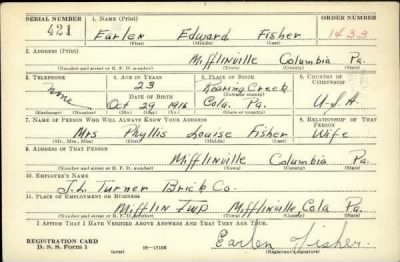 SERIAL NUMBER 1. NAME (Print) ORDER NUMBER
421 Earlen Edward Fisher 1433
(First) (Middle) (Last)
2. ADDRESS (Print)
Mifflinville Columbia Pa.
(Number and street or R. F. D. number) (Town) (County) (State)
3. TELEPHONE 4. AGE IN YEARS 5. PLACE OF BIRTH 6. COUNTRY OF CITIZENSHIP
none 23 Roaring Creek
DATE OF BIRTH (Town or county)
Oct 29 1916 Cola. Pa. U.S.A
(Exchange) (Number) (Mo.) (Day) (Yr.) (State or country)
7. NAME OF PERSON WHO WILL ALWAYS KNOW YOUR ADDRESS 8. RELATIONSHIP OF THAT PERSON
Mrs Phyllis Louise Fisher Wife
(Mr., Mrs., Miss) (First) (Middle) (Last)
9. ADDRESS OF THAT PERSON
Mifflinville Columbia Pa.
(Number and street or R. F. D. number) (Town) (County) (State)
10. EMPLOYER'S NAME
J.L. Turner Brick Co.
11. PLACE OF EMPLOYMENT OR BUSINESS
Mifflin Twp Mifflinville Cola Pa.
(Number and street or R. F. D. number) (Town) (County) (State)
I AFFIRM THAT I HAVE VERIFIED ABOVE ANSWERS AND THAT THEY ARE TRUE.
REGISTRATION CARD
D. S. S. Form 1 (over) 16—17105 Earlen Fisher.
(Registrant's signature)